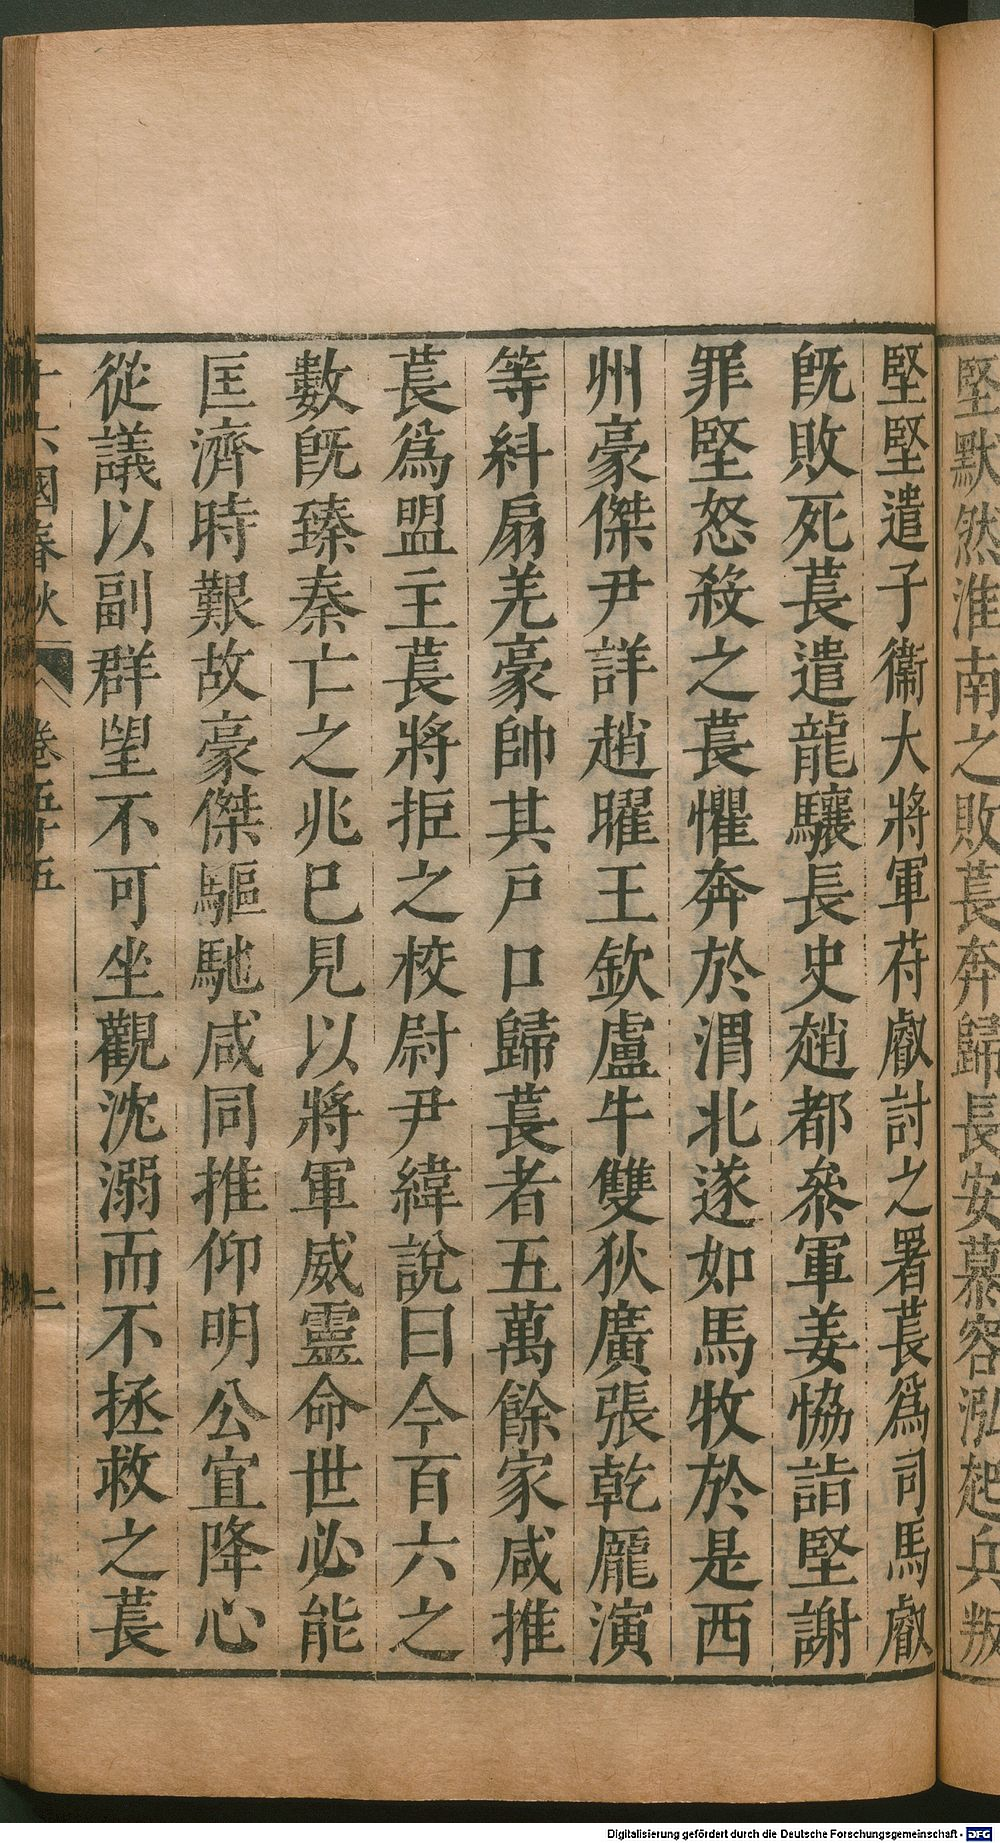 堅默然淮南之敗萇奔歸長安慕容泓起兵叛
堅堅遣子衞大將軍苻叡討之署萇爲司馬叡
旣敗死萇遣龍驤長史趙都叅軍姜恊詣堅謝
罪堅怒殺之萇懼奔於渭北遂如馬牧於是西
州豪傑尹詳趙曜王欽盧牛雙狄廣張乾龐演
等糾扇羌豪帥其戶口歸萇者五萬餘家咸推
萇爲盟主萇將拒之校尉尹緯說曰今百六之
數旣臻秦亡之兆已見以將軍威靈命世必能
匡濟時艱故豪傑驅馳咸同推仰明公宜降心
從議以副群望不可坐觀沈溺而不拯救之萇
十六國春秋
卷五十五
二
Digitalisierung gefördert durch die Deutsche Forschungsgemeinschaft - DFG